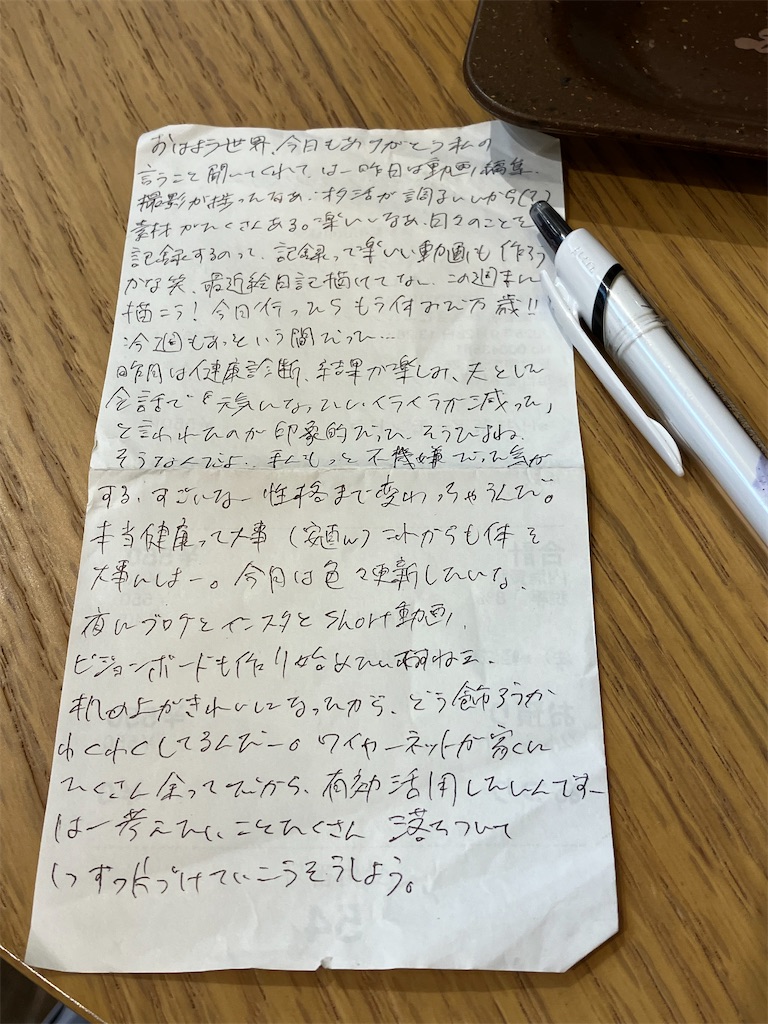 おはよう世界、今日もありがとう私の
言うこと聞いてくれて、はー昨日は動画編集、
撮影が捗ったなあ。オタ活が調子いいから(で)
素材がたくさんある。楽しいなあ、日々のことを
記録するのって、記録って楽しい動画も作ろう
かな笑、最近絵日記描けてない、この週末に
描こう!今日行ったらもう休みだ万歳!!
今週もあっという間だった…
昨日は健康診断、結果が楽しみ、夫とした
会話で「元気になったしイライラが減った」
と言われたのが印象的だった、そうだよね、
そうなんだよ、私もっと不機嫌だった気が
する、すごいなー性格まで変わっちゃうんだ。
本当健康って大事(安直w)これからも体を
大事にしよー。今月は色々更新したいな、
夜にブログとインスタとshort動画、
ビジョンボードも作り始めたい
机の上がきれいになったから、どう飾ろうか
わくわくしてるんだー。ワイヤーネットが家に
たくさん余ってだから、有効活用したいんですー
はー考えたいことたくさん 落ちついて
1つずつ片づけていこうそうしよう。
合計